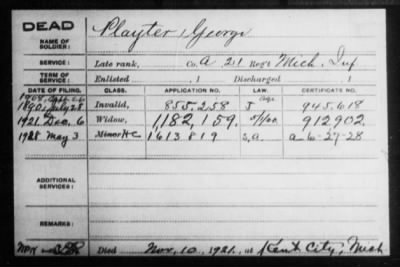 DEAD
NAME OF SOLDIER: Playter, George
SERVICE: Late rank, Co. A 21 Reg't Mich. Inf
TERM OF SERVICE: Enlisted , 1 Discharged , 1
DATE OF FILING. CLASS. APPLICATION NO. LAW. CERTIFICATE NO.
1908,
1890, July 28 Invalid, 855,258 J 945,618
1921, Dec. 6 Widow, 1,182,159. 912902.
1928 May 3 Minor HC 1613819 S.A. a-6-27-28
ADDITIONAL SERVICES:
REMARKS:
Died Nov. 10, 1921, at Kent City, Mich